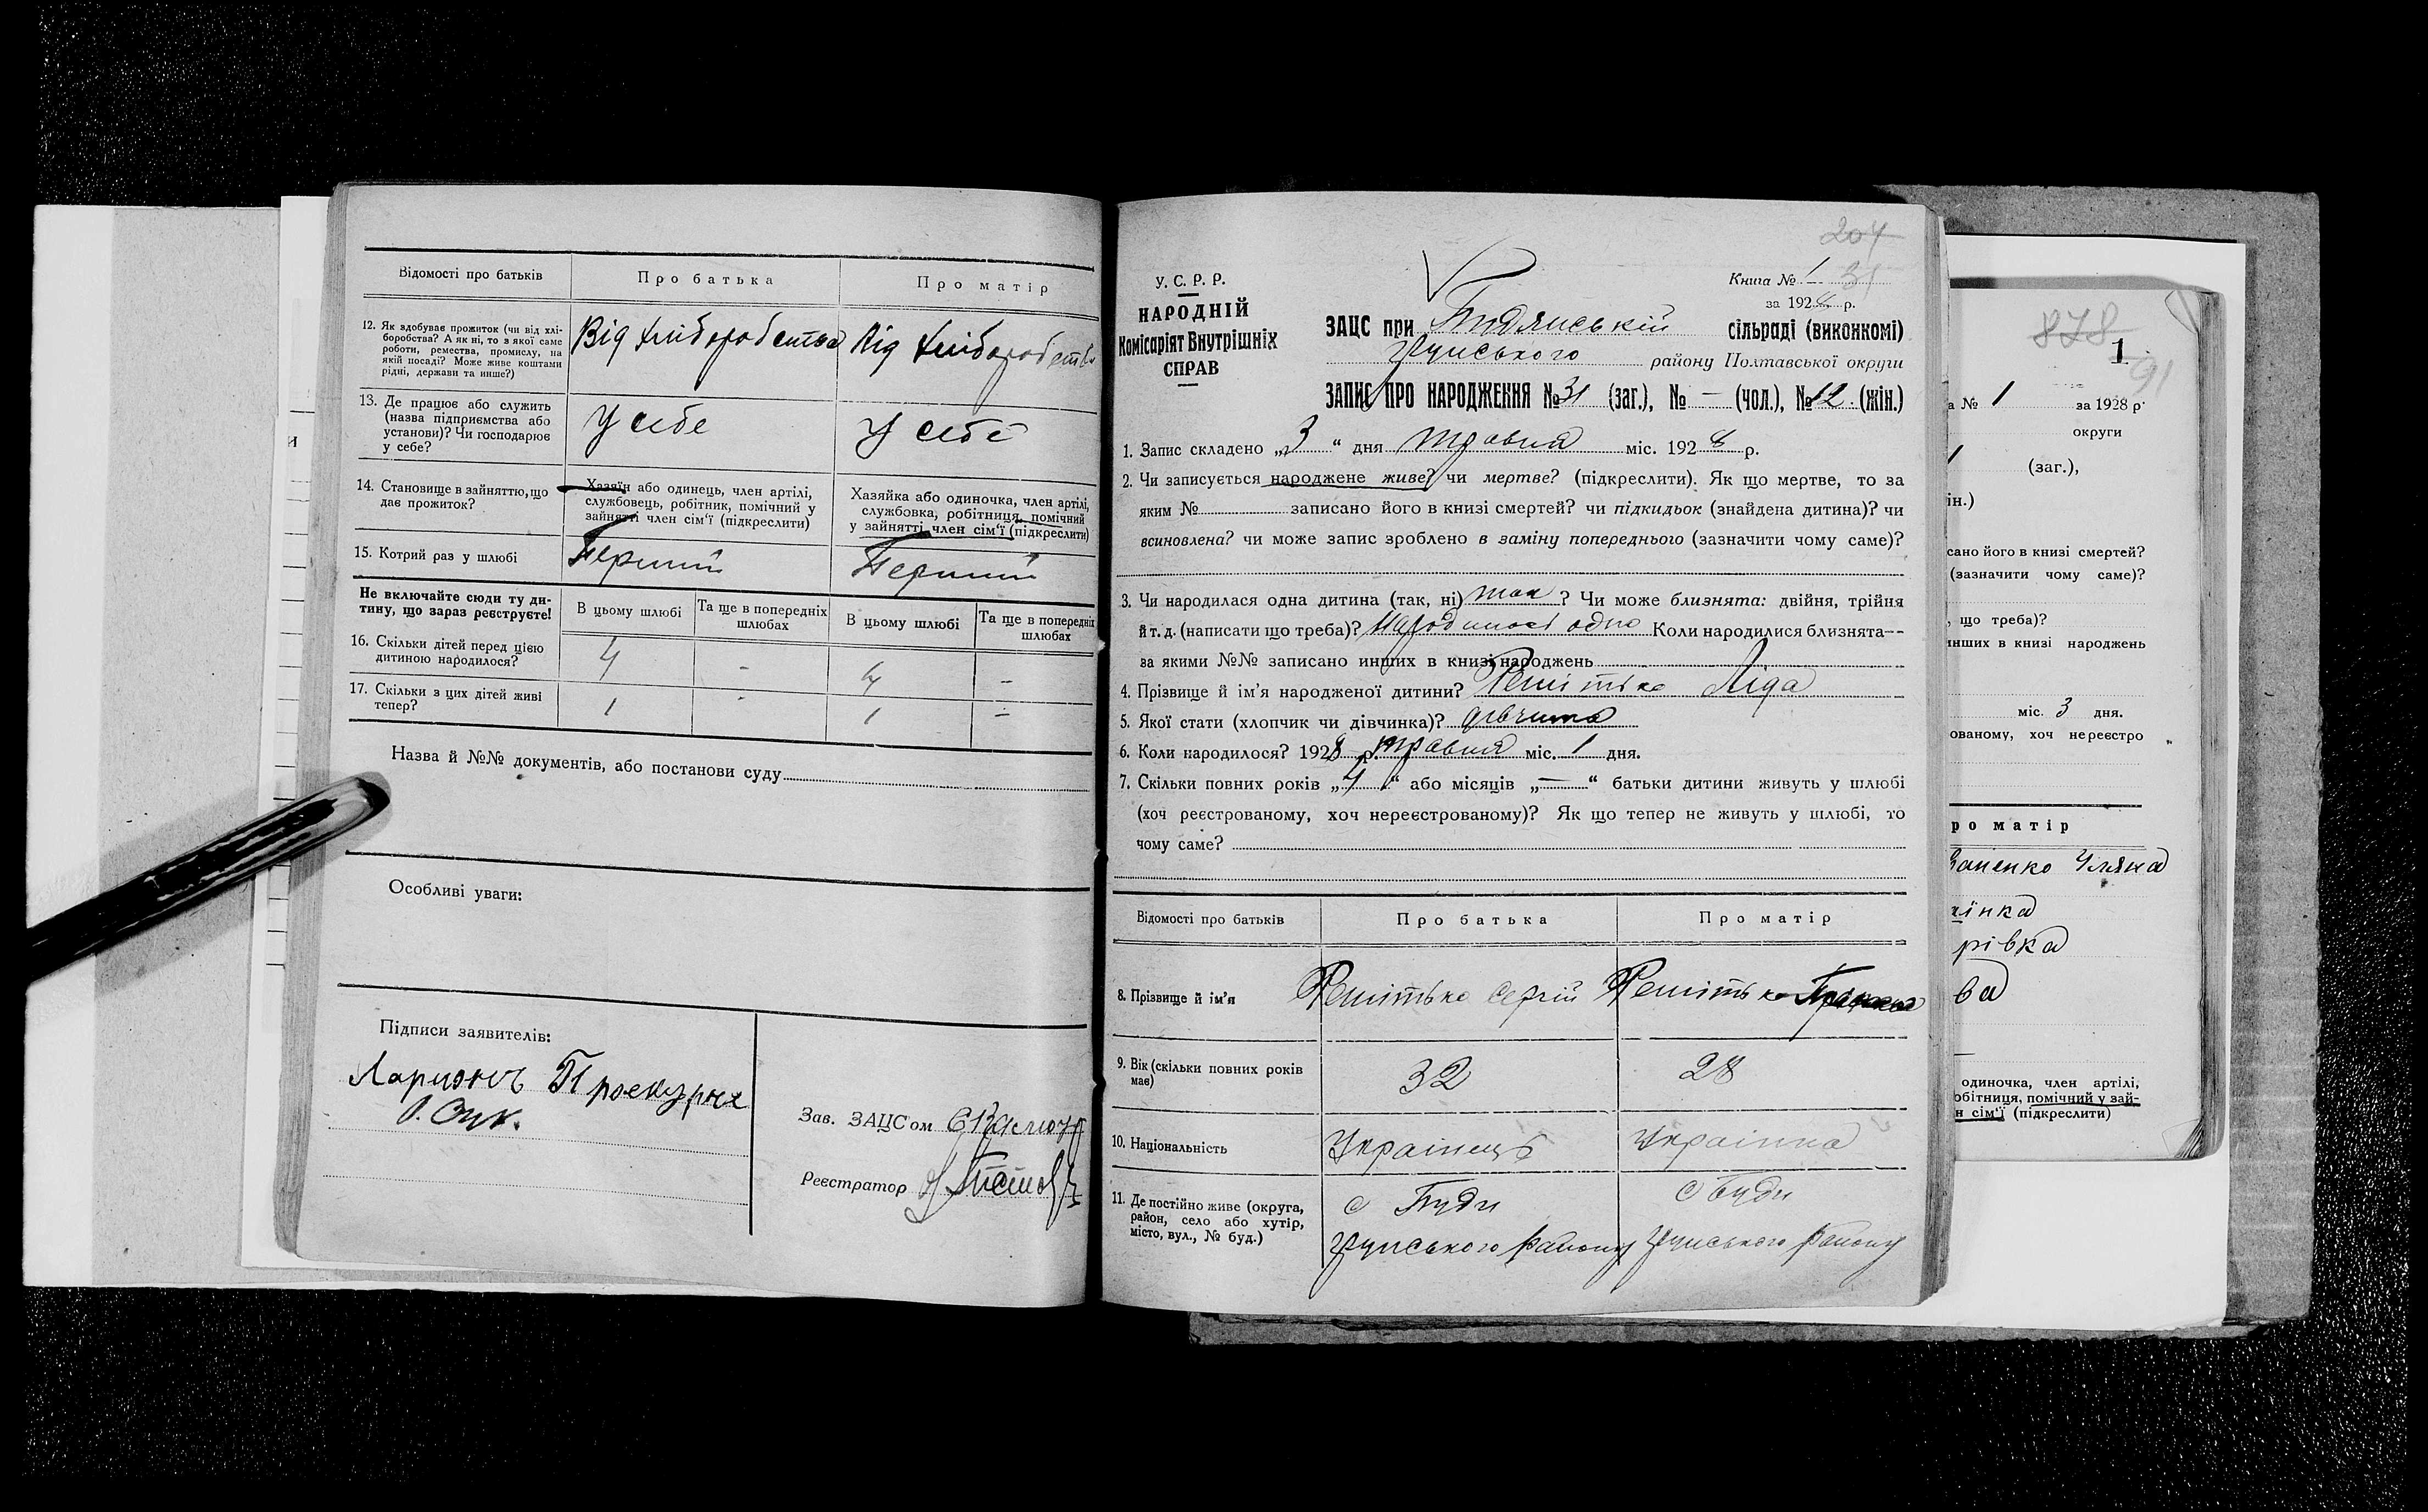 Відомості про батьків
Про батька
Про матір
12. Як здобуває прожиток (чи від хлі-
боробства? А як ні, то з якої саме
роботи, ремества, промислу, на
якій посаді? Може живе коштами
рідні, держави та инше?)
Від хліборобства
Від хліборобства
13. Де працює або служить
(назва підприємства або
установи)? Чи господарює
у себе?
У себе
У себе
14. Становище в зайняттю, що
дає прожиток?
Хазяїн або одинець, член артілі,
службовець, робітник, помічний у
зайнятті член сім'ї (підкреслити)
Хазяйка або одиночка, член артілі,
службовка, робітниця, помічний
у зайнятті член сім'ї (підкреслити)
15. Котрий раз у шлюбі
Перший
Перший
Не включайте сюди ту ди-
тину, що зараз реєструєте!
В цьому шлюбі
Та ще в попередніх
шлюбах
В цьому шлюбі
Та ще в попередніх
шлюбах
16. Скільки дітей перед цією
дитиною народилося?
4 - 4 -
17. Скільки з цих дітей живі
тепер?
1 - 1 -
Назва й №№ документів, або постанови суду
Особливі уваги:
Підписи заявителів:
Зав. ЗАЦС'ом
Реєстратор
204
31
У. С. Р. Р.
НАРОДНІЙ
Комісаріят Внутрішніх
СПРАВ
Книга № 1
за 1928 р.
ЗАЦС при Будянській сільраді (виконкомі)
Грунського району Полтавської округи
ЗАПИС ПРО НАРОДЖЕННЯ № 31 (заг.), № — (чол.), № 12 (жін.)
1. Запис складено „3" дня травня міс. 1928 р.
2. Чи записується народжене живе? чи мертве? (підкреслити). Як що мертве, то за
яким № записано його в книзі смертей? чи підкидьок (знайдена дитина)? чи
всиновлена? чи може запис зроблено в заміну попереднього (зазначити чому саме)?
3. Чи народилася одна дитина (так, ні) так ? Чи може близнята: двійня, трійня
й т. д. (написати що треба)? Народилось одно Коли народилися близнята—
за якими №№ записано инших в книзі народжень
4. Прізвище й ім'я народженої дитини? Решітько Ліда
5. Якої стати (хлопчик чи дівчинка)? дівчина
6. Коли народилося? 1928 р. травня міс. 1 дня.
7. Скільки повних років „4" або місяців „—" батьки дитини живуть у шлюбі
(хоч реєстрованому, хоч нереєстрованому)? Як що тепер не живуть у шлюбі, то
чому саме?
Відомості про батьків
Про батька
Про матір
8. Прізвище й ім'я
Решітько Сергій
Решітько
9. Вік (скільки повних років
має)
32
28
10. Національність
Українець
Українка
11. Де постійно живе (округа,
район, село або хутір,
місто, вул., № буд.)
с Буди
Грунського району
с Буди
Грунського району
878
1
91
а № 1 за 1928 р.
округи
(заг.),
ін.)
сано його в книзі смертей?
(зазначити чому саме)?
, що треба)?
инших в книзі народжень
міс. 3 дня.
ованому, хоч нереєстро
ро матір
Уляна
їнка
рівка
ва
одиночка, член артілі,
обітниця, помічний у зай-
н сім'ї (підкреслити)